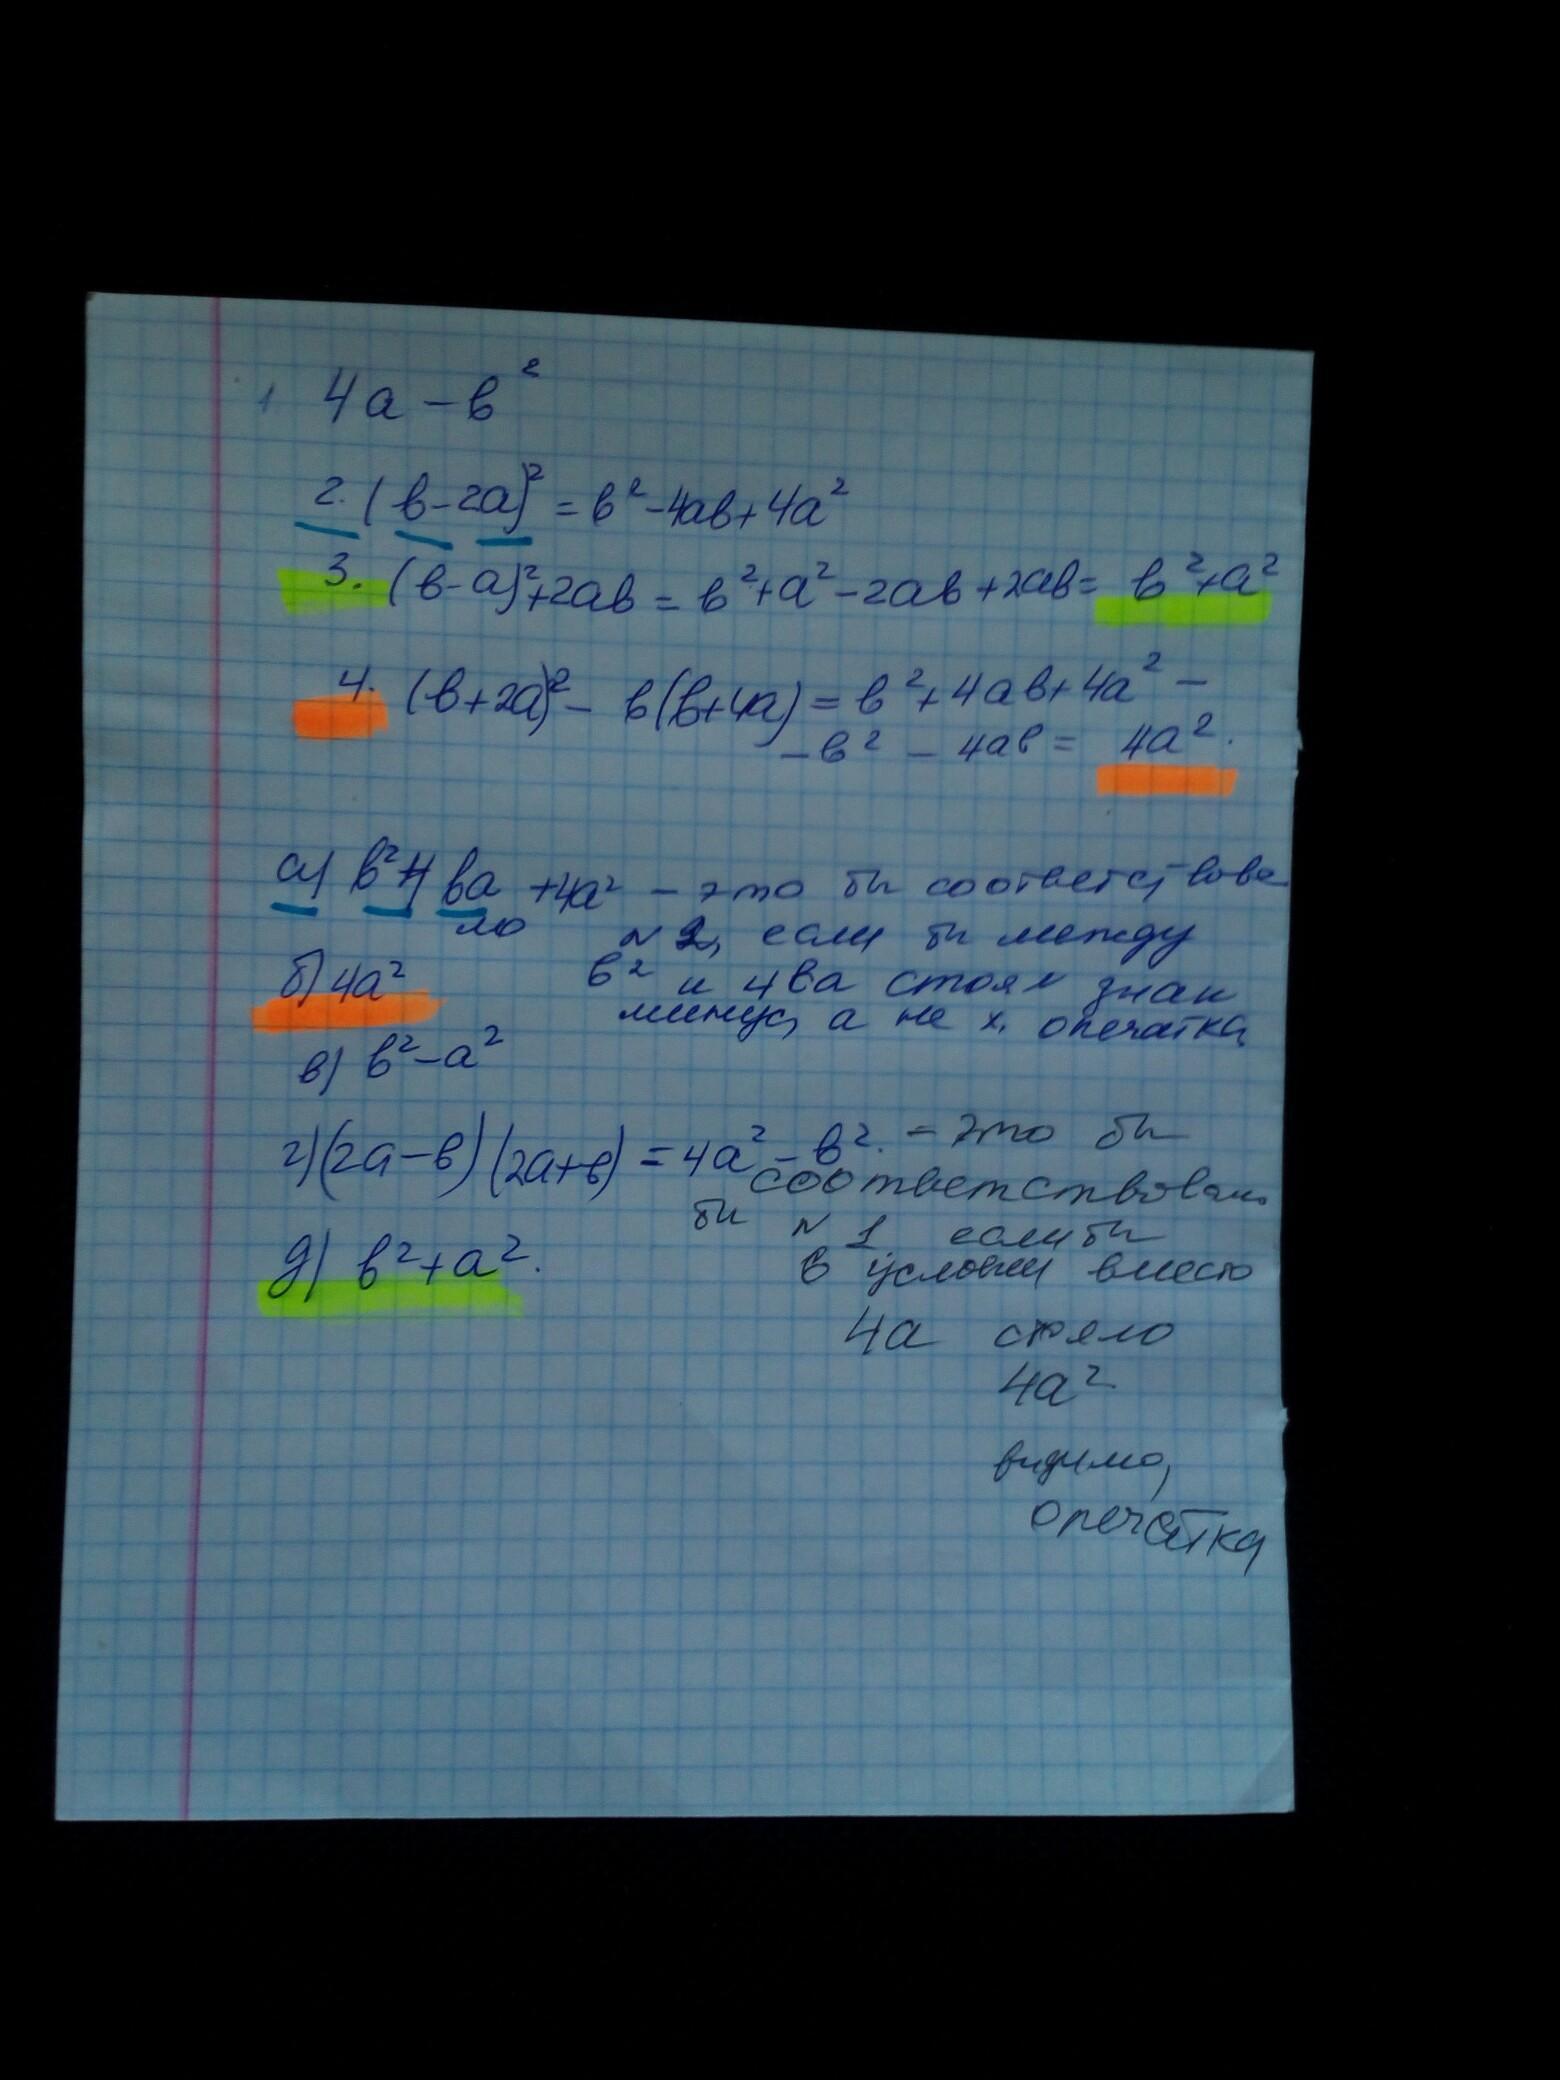 1 4а - в²
2. (в-2а)² = в² - 4ав + 4а²
3. (в-а)² + 2ав = в² + а² - 2ав + 2ав = в² + а²
4. (в+2а)² - в(в+4а) = в² + 4ав + 4а² -
- в² - 4ав = 4а².
а) в² + ва + 4а² - это бы соответствова
ло № 2, если бы между
б) 4а² в² и 4ва стоял знак
минус, а не х. опечатка
в) в² - а²
г) (2а-в) (2а+в) = 4а² - в². - это бы
соответствовало
бы № 1 если бы
в условии вместо
д) в² + а².
4а стояло
4а²
видимо,
опечатка